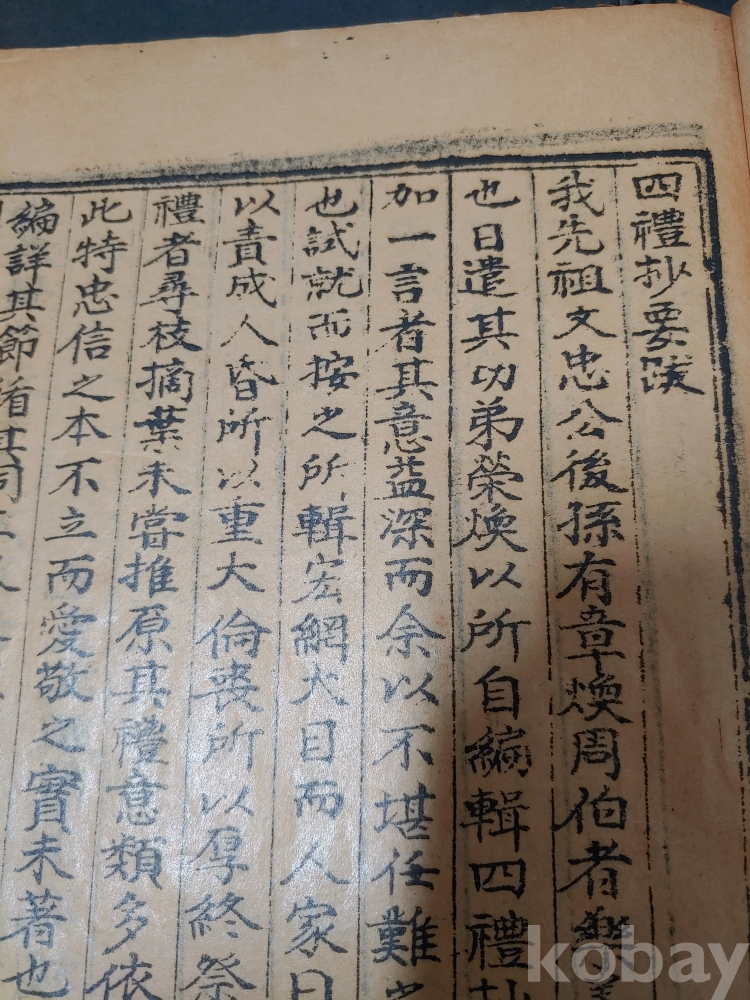 四禮抄要跋
我先祖文忠公後孫有章煥周伯者樂
也日遣其功弟榮煥以所自編輯四禮抄
加一言者其意益深而余以不堪任難之
也試就而按之所輯宏綱大目而人家日
以責成人昏所以重大倫喪所以厚終祭
禮者尋枝摘葉未嘗推原其禮意類多依
此特忠信之本不立而愛敬之實未著也
編詳其節看其同
kobay